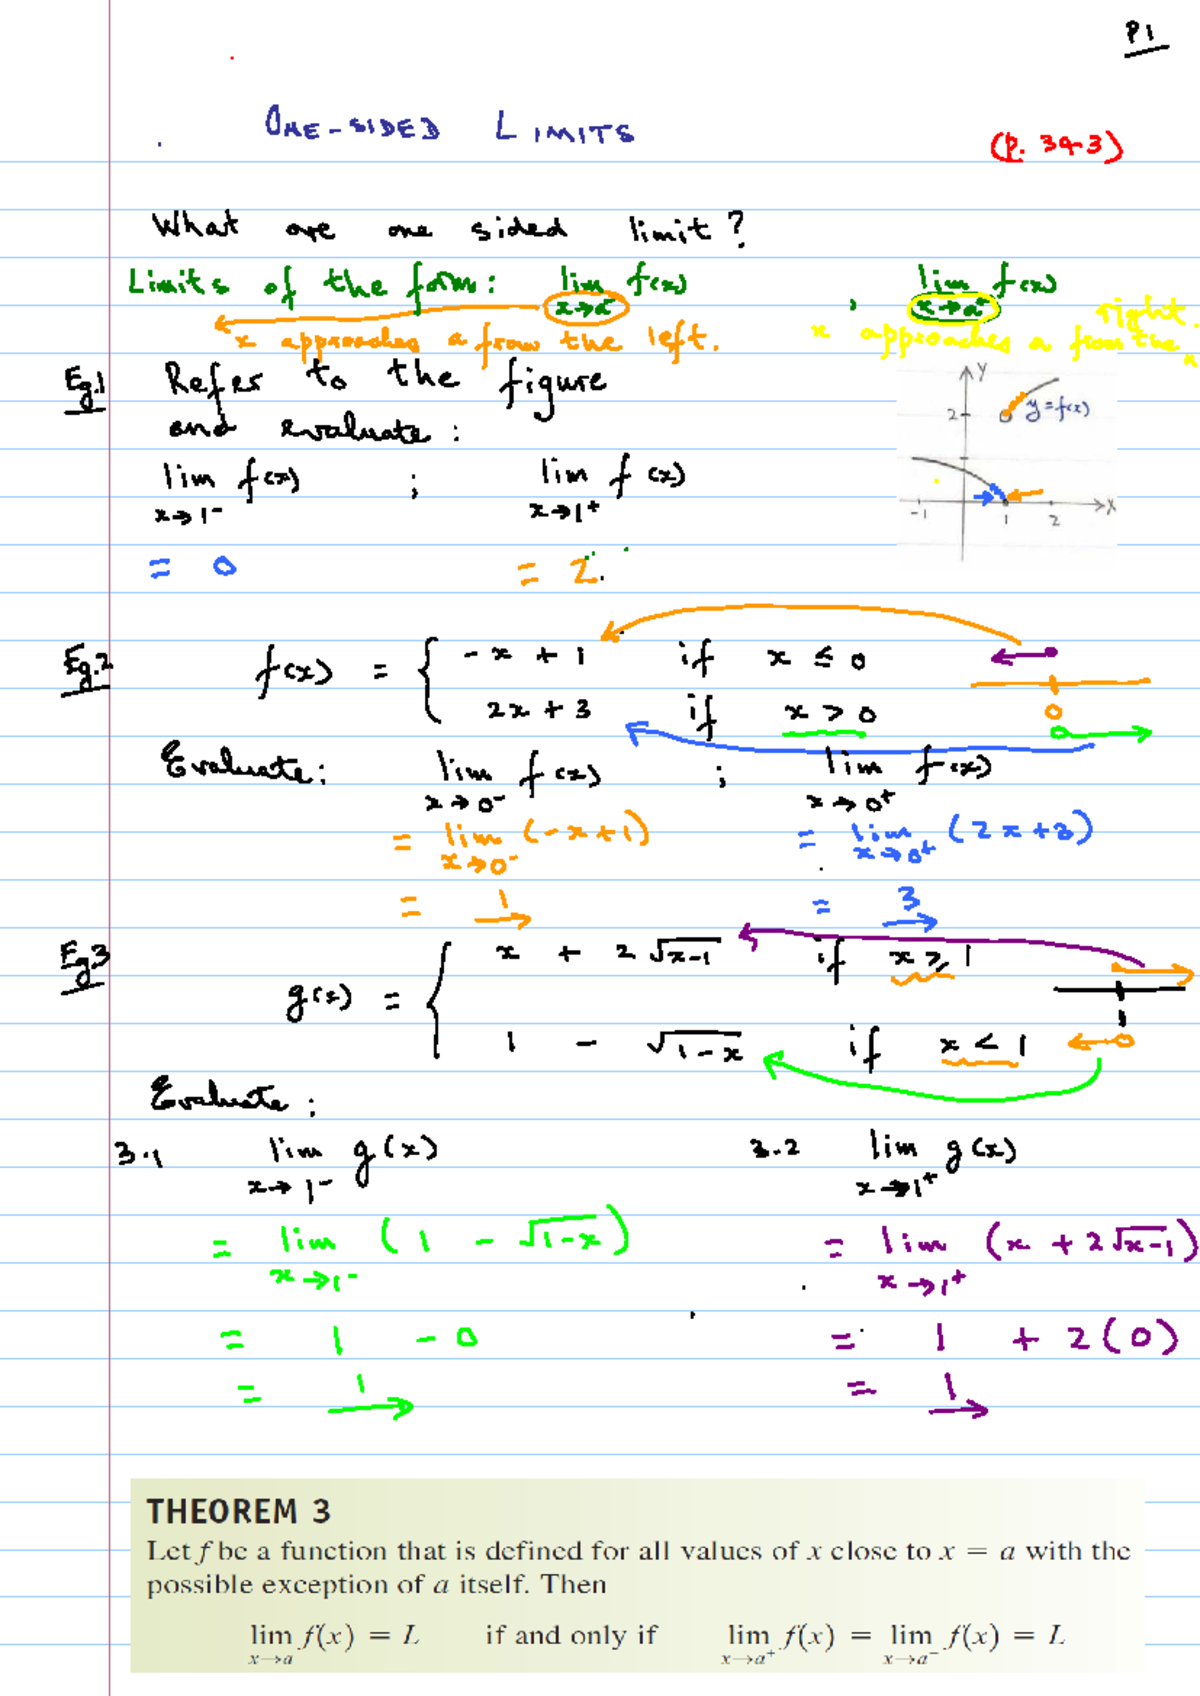 P1
ONE-SIDED LIMITS
(p. 39-3)
What are one sided limit?
Limits of the form: lim f(x) , lim f(x)
x→a⁻ x→a⁺
x approaches a from the left. x approaches a from the right.
Eg.1 Refer to the figure
and evaluate:
lim f(x) ; lim f(x)
x→1⁻ x→1⁺
= 0 = 2.
Y
2
y=f(x)
-1 1 2 X
Eg.2 f(x) = { -x + 1 if x ≤ 0
2x + 3 if x > 0
0
Evaluate: lim f(x) ; lim f(x)
x→0⁻ x→0⁺
= lim (-x+1) = lim (2x+3)
x→0⁻ x→0⁺
= 1 = 3
Eg3 g(x) = { x + 2√(x-1) if x ≥ 1
1 - √(1-x) if x < 1
1
Evaluate:
3.1 lim g(x) 3.2 lim g(x)
x→1⁻ x→1⁺
= lim (1 - √(1-x)) = lim (x + 2√(x-1))
x→1⁻ x→1⁺
= 1 - 0 = 1 + 2(0)
= 1 = 1
THEOREM 3
Let f be a function that is defined for all values of x close to x = a with the
possible exception of a itself. Then
lim f(x) = L if and only if lim f(x) = lim f(x) = L
x→a x→a⁺ x→a⁻